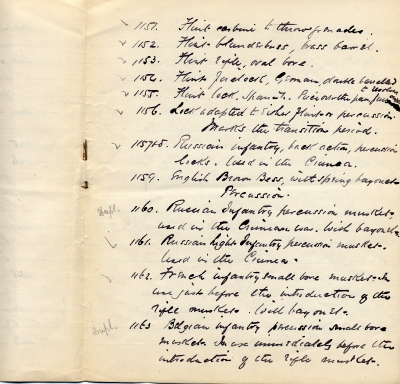 1151. Flint carbine to throw grenades.
1152. Flint blunderbuss, brass barrel.
1153. Flint rifle, oval bore.
1154. Flint firelock, German, double barrelled
1155. Flint lock, Spanish.
1156. Lock adapted to either flint or percussion
Marks the transition period.
1157+8. Russian infantry, back action, percussion
locks. Used in the Crimea.
1159. English Brown Bess, with spring bayonet
Percussion.
Dupl. 1160. Russian Infantry percussion musket
used in the Crimean war. With bayonet.
1161. Russian light Infantry percussion musket.
Used in the Crimea.
1162. French infantry small bore musket. In
use just before the introduction of the
rifle musket. With bayonet.
Dupl. 1163 Belgian infantry percussion small bore
musket. In use immediately before the
introduction of the rifle musket.